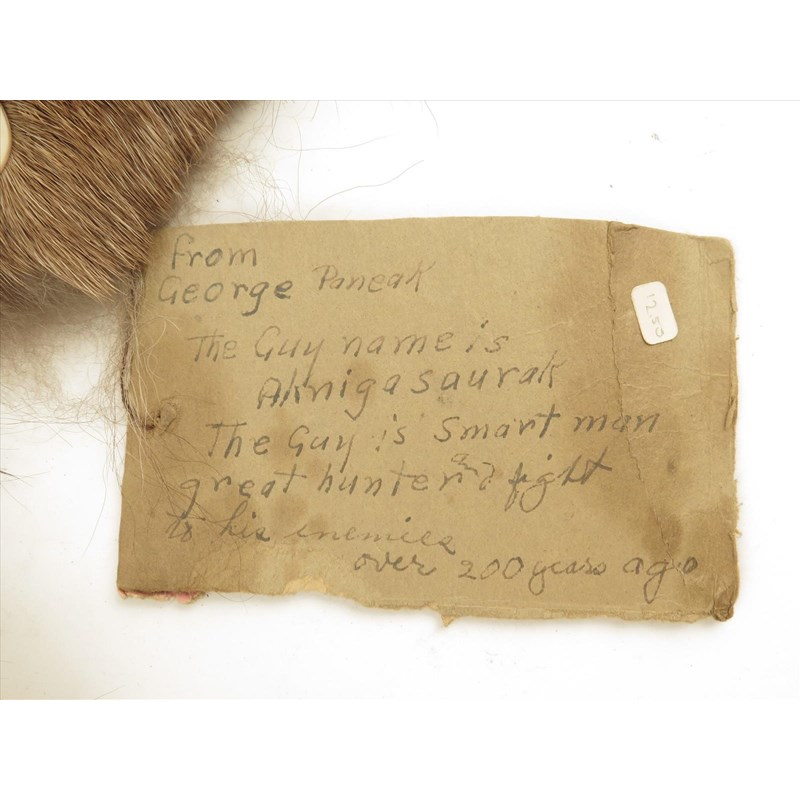 from
George Paneak
The Guy name is
Ahnigasaurak
The Guy is Smart man
great hunter and fight
to his enemies
over 200 years ago
12.50